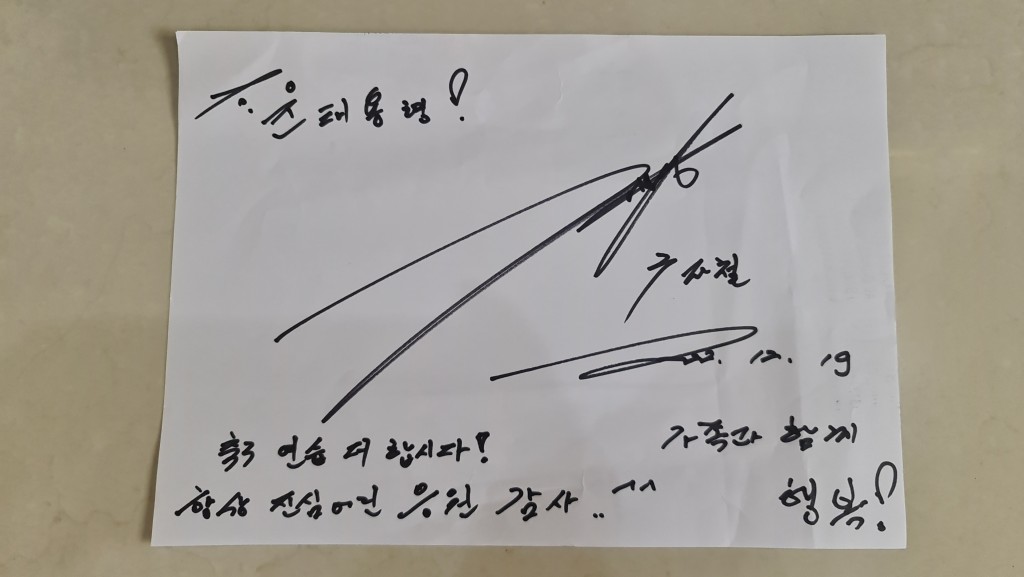 대통령!
구자철
22. 12. 19
축구 연습 더 합시다!
항상 진심어린 응원 감사..^^
가족과 함께
행복!